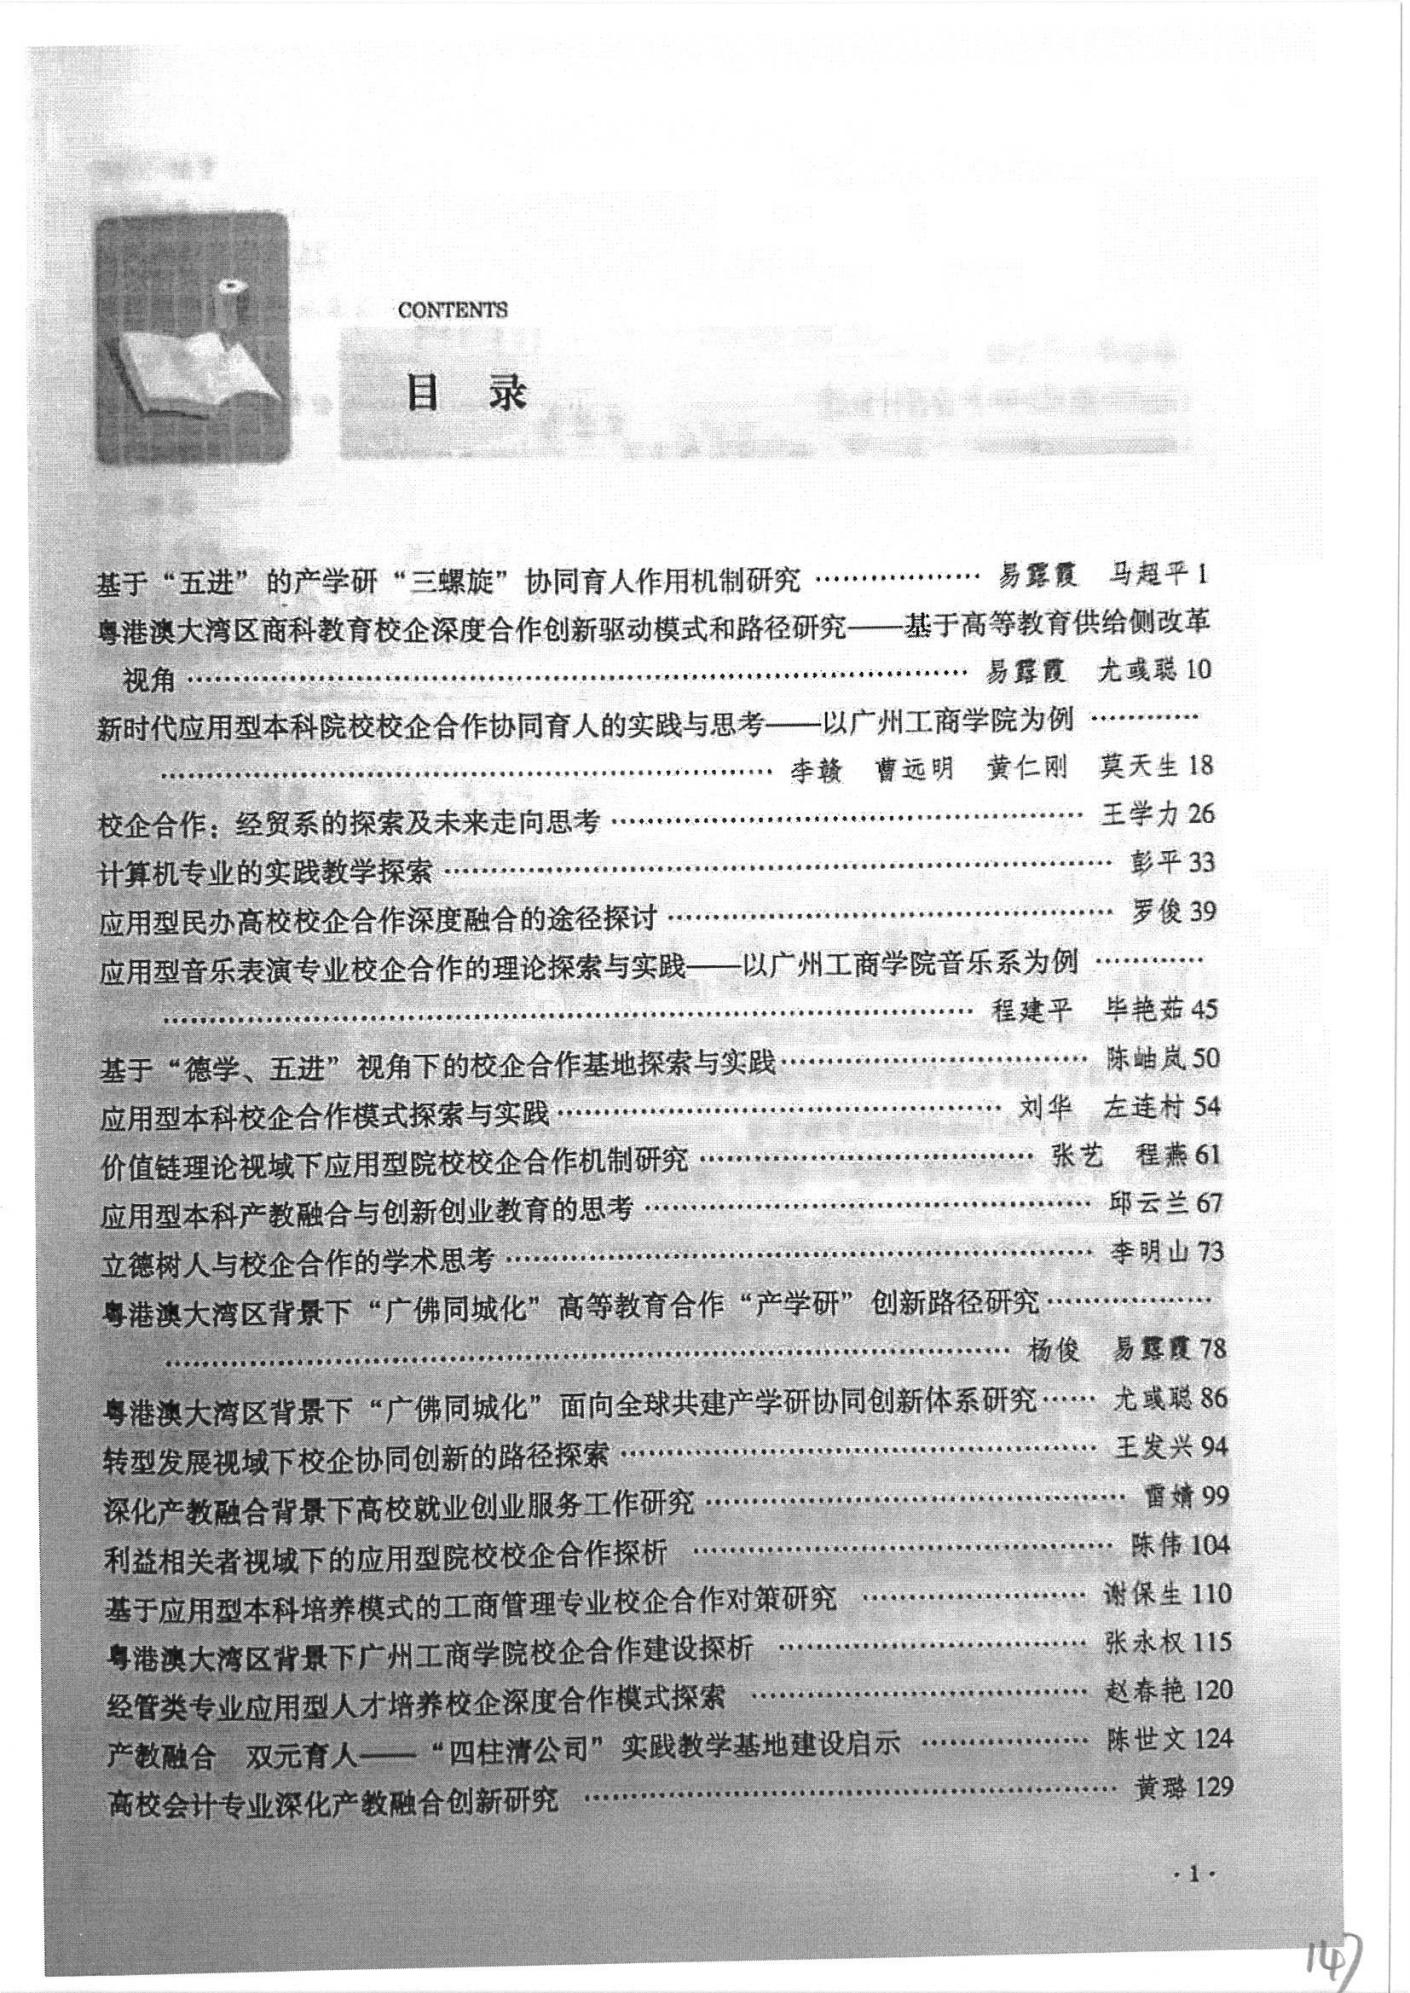 CONTENTS
目 录
基于“五进”的产学研“三螺旋”协同育人作用机制研究 ……………… 易露霞 马超平 1
粤港澳大湾区商科教育校企深度合作创新驱动模式和路径研究——基于高等教育供给侧改革
视角 ………………………………………………………………………… 易露霞 尤彧聪 10
新时代应用型本科院校校企合作协同育人的实践与思考——以广州工商学院为例 …………
………………………………………………………… 李赣 曹远明 黄仁刚 莫天生 18
校企合作：经贸系的探索及未来走向思考 …………………………………………… 王学力 26
计算机专业的实践教学探索 ……………………………………………………………… 彭平 33
应用型民办高校校企合作深度融合的途径探讨 ………………………………………… 罗俊 39
应用型音乐表演专业校企合作的理论探索与实践——以广州工商学院音乐系为例 …………
…………………………………………………………………………… 程建平 毕艳茹 45
基于“德学、五进”视角下的校企合作基地探索与实践 …………………………… 陈岫岚 50
应用型本科校企合作模式探索与实践 ………………………………………… 刘华 左连村 54
价值链理论视域下应用型院校校企合作机制研究 ……………………………… 张艺 程燕 61
应用型本科产教融合与创新创业教育的思考 ………………………………………… 邱云兰 67
立德树人与校企合作的学术思考 ……………………………………………………… 李明山 73
粤港澳大湾区背景下“广佛同城化”高等教育合作“产学研”创新路径研究 ………………
……………………………………………………………………………… 杨俊 易露霞 78
粤港澳大湾区背景下“广佛同城化”面向全球共建产学研协同创新体系研究 …… 尤彧聪 86
转型发展视域下校企协同创新的路径探索 …………………………………………… 王发兴 94
深化产教融合背景下高校就业创业服务工作研究 ……………………………………… 雷婧 99
利益相关者视域下的应用型院校校企合作探析 ……………………………………… 陈伟 104
基于应用型本科培养模式的工商管理专业校企合作对策研究 …………………… 谢保生 110
粤港澳大湾区背景下广州工商学院校企合作建设探析 …………………………… 张永权 115
经管类专业应用型人才培养校企深度合作模式探索 ……………………………… 赵春艳 120
产教融合 双元育人——“四柱清公司”实践教学基地建设启示 ……………… 陈世文 124
高校会计专业深化产教融合创新研究 ………………………………………………… 黄璐 129
· 1 ·
147